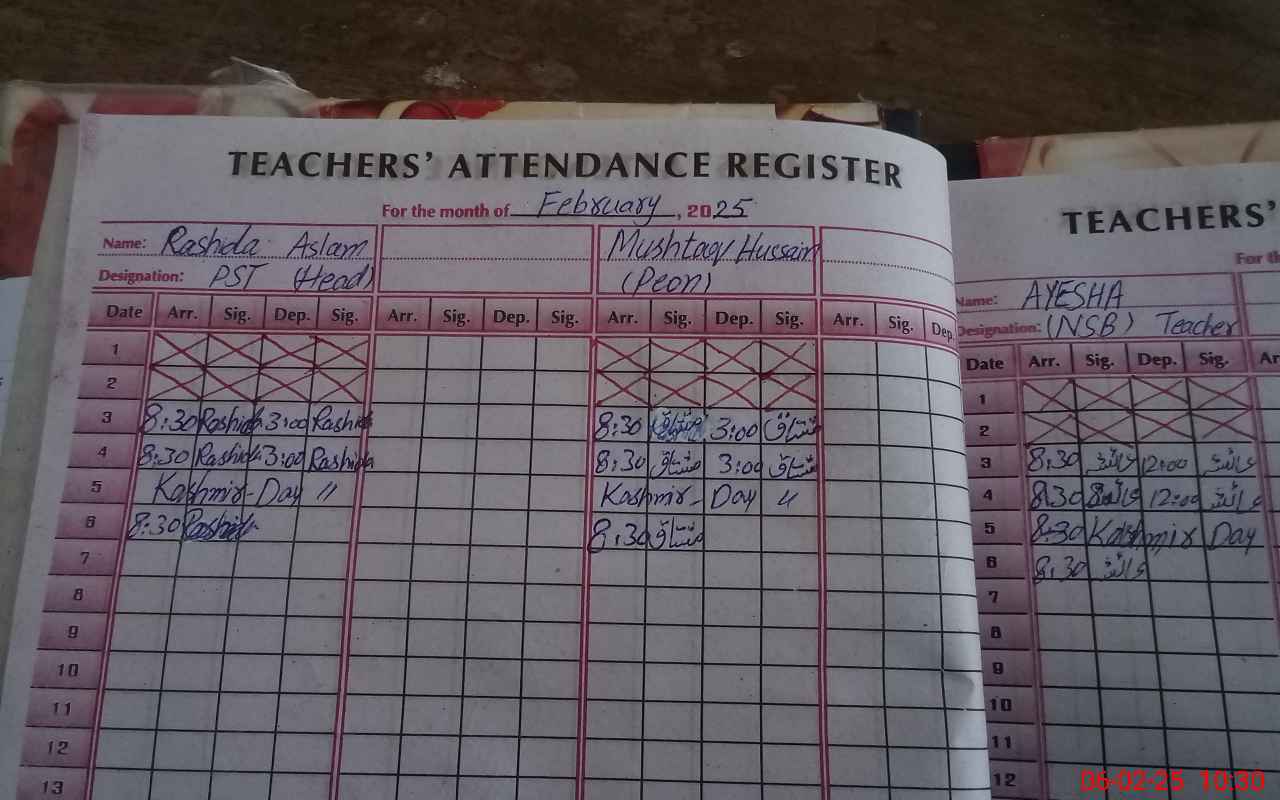 TEACHERS' ATTENDANCE REGISTER
For the month of February, 2025
Name: Rashida Aslam Mushtaq Hussain
Designation: PST (Head) (Peon)
Date Arr. Sig. Dep. Sig. Arr. Sig. Dep. Sig. Arr. Sig. Dep. Sig. Arr. Sig. Dep.
1
2
3 8:30 Rashida 3:00 Rashida 8:30 مشتاق 3:00 مشتاق
4 8:30 Rashida 3:00 Rashida 8:30 مشتاق 3:00 مشتاق
5 Kashmir - Day " Kashmir - Day "
6 8:30 Rashida 8:30 مشتاق
7
8
9
10
11
12
13
TEACHERS'
For th
Name: AYESHA
Designation: (NSB) Teacher
Date Arr. Sig. Dep. Sig. Ar
1
2
3 8:30 عائشہ 12:00 عائشہ
4 8:30 عائشہ 12:00 عائشہ
5 8:30 Kashmir Day
6 8:30 عائشہ
7
8
9
10
11
12
06-02-25 10:30